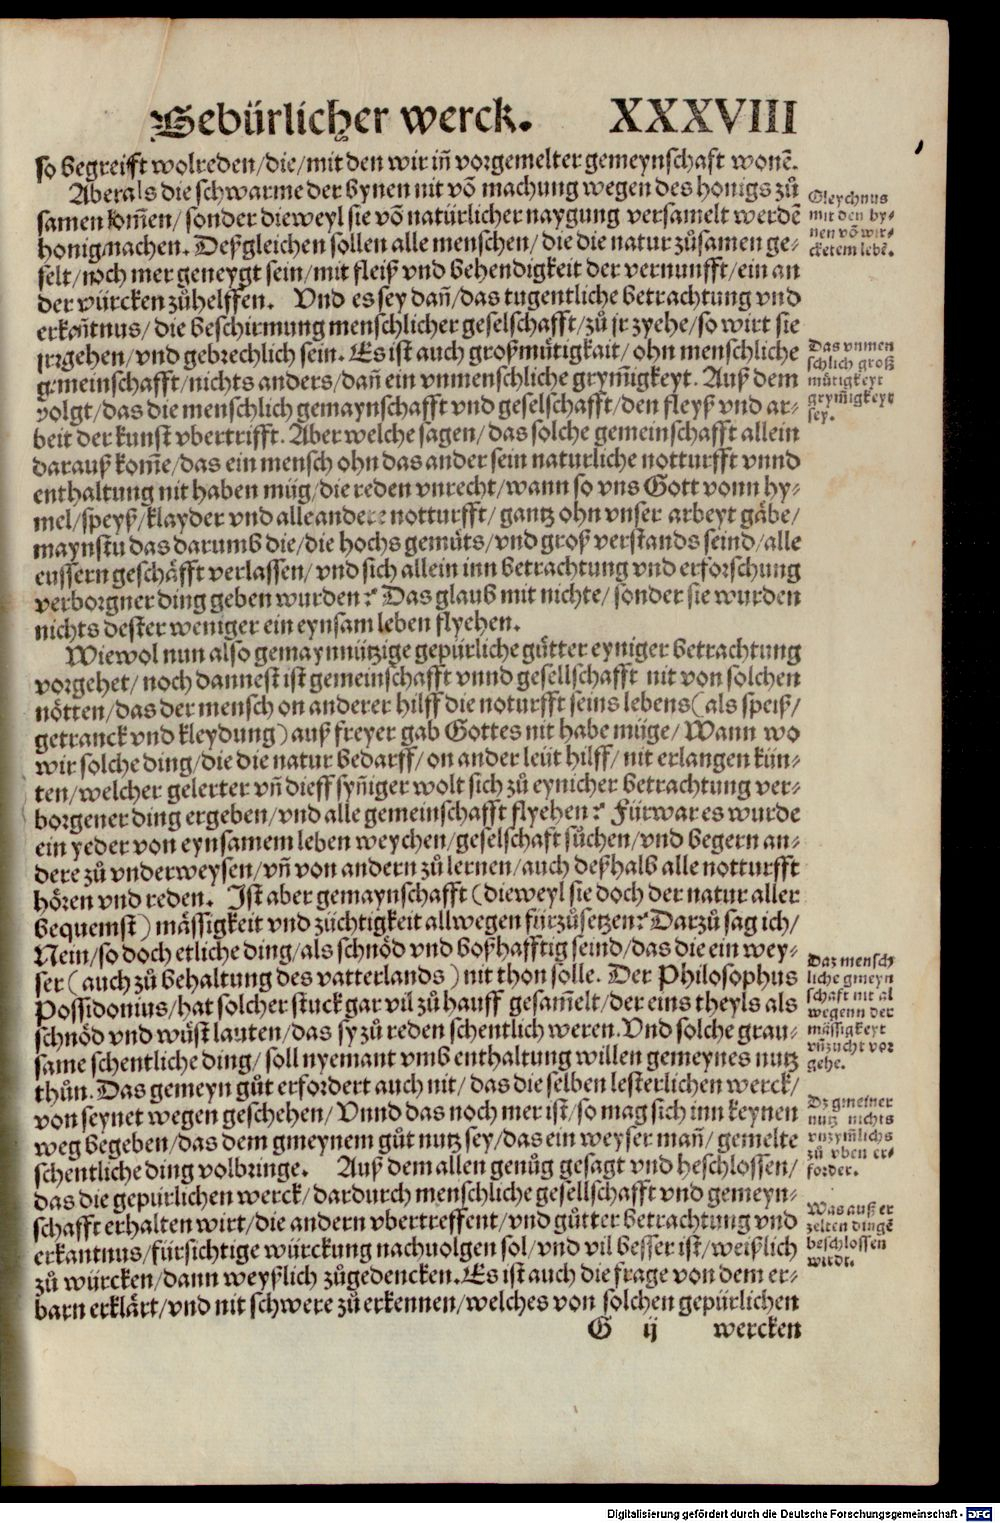 Gebürlicher werck. XXXVIII
so begreifft wolreden/die/mit den wir iñ vorgemelter gemeynschaft wonẽ.
Aber als die schwarme der bynen nit võ machung wegen des honigs zů
samen kom̃en/sonder dieweyl sie võ natürlicher naygung versamelt werdẽ
honig machen. Deßgleichen sollen alle menschen/die die natur zůsamen ge-
selt/noch mer geneygt sein/mit fleiß vnd behendigkeit der vernunfft/ein an
der würcken zůhelffen. Vnd es sey dañ/das tugentliche betrachtung vnd
erkañtnus/die beschirmung menschlicher geselschafft/zů jr zyehe/so wirt sie
jrrgehen/vnd gebrechlich sein. Es ist auch großmütigkait/ohn menschliche
gemeinschafft/nichts anders/dañ ein vnmenschliche grym̃igkeyt. Auß dem
volgt/das die menschlich gemaynschafft vnd geselschafft/den fleyß vnd ar-
beit der kunst vbertrifft. Aber welche sagen/das solche gemeinschafft allein
darauß kom̃e/das ein mensch ohn das ander sein naturliche notturfft vnnd
enthaltung nit haben müg/die reden vnrecht/wann so vns Gott vonn hy-
mel/speyß/klayder vnd alle andere notturfft/gantz ohn vnser arbeyt gäbe/
maynstu das darumb die/die hochs gemüts/vnd groß verstands seind/alle
eussern geschäfft verlassen/vnd sich allein inn betrachtung vnd erforschung
verborgner ding geben wurden? Das glaub mit nichte/sonder sie wurden
nichts dester weniger ein eynsam leben flyehen.
Wiewol nun also gemaynnützige gepürliche gütter eyniger betrachtung
vorgehet/noch dannest ist gemeinschafft vnnd gesellschafft nit von solchen
nötten/das der mensch on anderer hilff die noturfft seins lebens(als speiß/
getranck vnd kleydung)auß freyer gab Gottes nit habe müge/Wann wo
wir solche ding/die die natur bedarff/on ander leüt hilff/nit erlangen kün-
ten/welcher gelerter vñ dieff syñiger wolt sich zů eynicher betrachtung ver-
borgener ding ergeben/vnd alle gemeinschafft flyehen? Fürwar es wurde
ein yeder von eynsamem leben weychen/geselschaft sůchen/vnd begern an-
dere zů vnderweysen/vñ von andern zů lernen/auch deßhalb alle notturfft
hören vnd reden. Ist aber gemaynschafft(dieweyl sie doch der natur aller
bequemst)mässigkeit vnd züchtigkeit allwegen fürzůsetzen? Darzů sag ich/
Nein/so doch etliche ding/als schnöd vnd boßhafftig seind/das die ein wey-
ser(auch zů behaltung des vatterlands)nit thon solle. Der Philosophus
Possidonius/hat solcher stuck gar vil zů hauff gesam̃elt/der eins theyls als
schnöd vnd wüst lauten/das sy zů reden schentlich weren. Vnd solche grau-
same schentliche ding/soll nyemant vmb enthaltung willen gemeynes nutz
thůn. Das gemeyn gůt erfordert auch nit/das die selben lesterlichen werck/
von seynet wegen geschehen/Vnnd das noch mer ist/so mag sich inn keynen
weg begeben/das dem gmeynem gůt nutz sey/das ein weyser mañ/gemelte
schentliche ding volbringe. Auß dem allen genůg gesagt vnd beschlossen/
das die gepürlichen werck/dardurch menschliche gesellschafft vnd gemeyn-
schafft erhalten wirt/die andern vbertreffent/vnd gütter betrachtung vnd
erkantnus/fürsichtige würckung nachuolgen sol/vnd vil besser ist/weißlich
zů würcken/dann weyßlich zůgedencken. Es ist auch die frage von dem er-
barn erklärt/vnd nit schwere zů erkennen/welches von solchen gepürlichen
G ij wercken
Gleychnus
mit den by-
nen võ wir-
cketem lebẽ.
Das vnmen
schlich groß
mütigkeyt
grym̃igkeyt
sey.
Daz mensch
liche gmeyn
schaft nit al
wegenn der
mässigkeyt
vñ zucht vor
gehe.
Dz gmeiner
nutz nichts
vnzym̃lichs
zů vben er-
forder.
Was auß er
zelten dingẽ
beschlossen
wirdt.
Digitalisierung gefördert durch die Deutsche Forschungsgemeinschaft - DFG